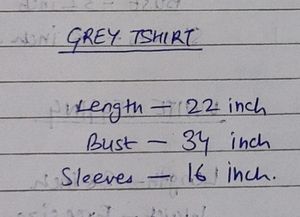 GREY TSHIRT
Length – 22 inch
Bust – 34 inch
Sleeves – 16 inch.